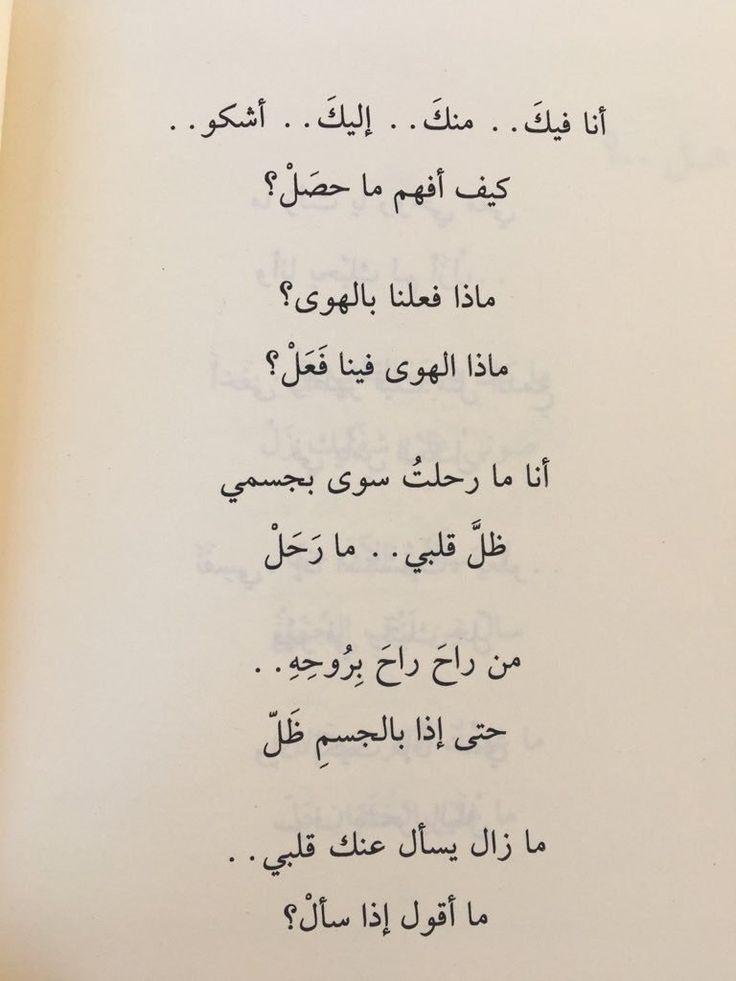 أنا فيكَ.. منكَ.. إليكَ.. أشكو..
كيف أفهم ما حصَلْ؟
ماذا فعلنا بالهوى؟
ماذا الهوى فينا فَعَلْ؟
أنا ما رحلتُ سوى بجسمي
ظلَّ قلبي.. ما رَحَلْ
من راحَ راحَ بِرُوحِهِ..
حتى إذا بالجسمِ ظَلّ
ما زال يسأل عنك قلبي..
ما أقول إذا سألْ؟